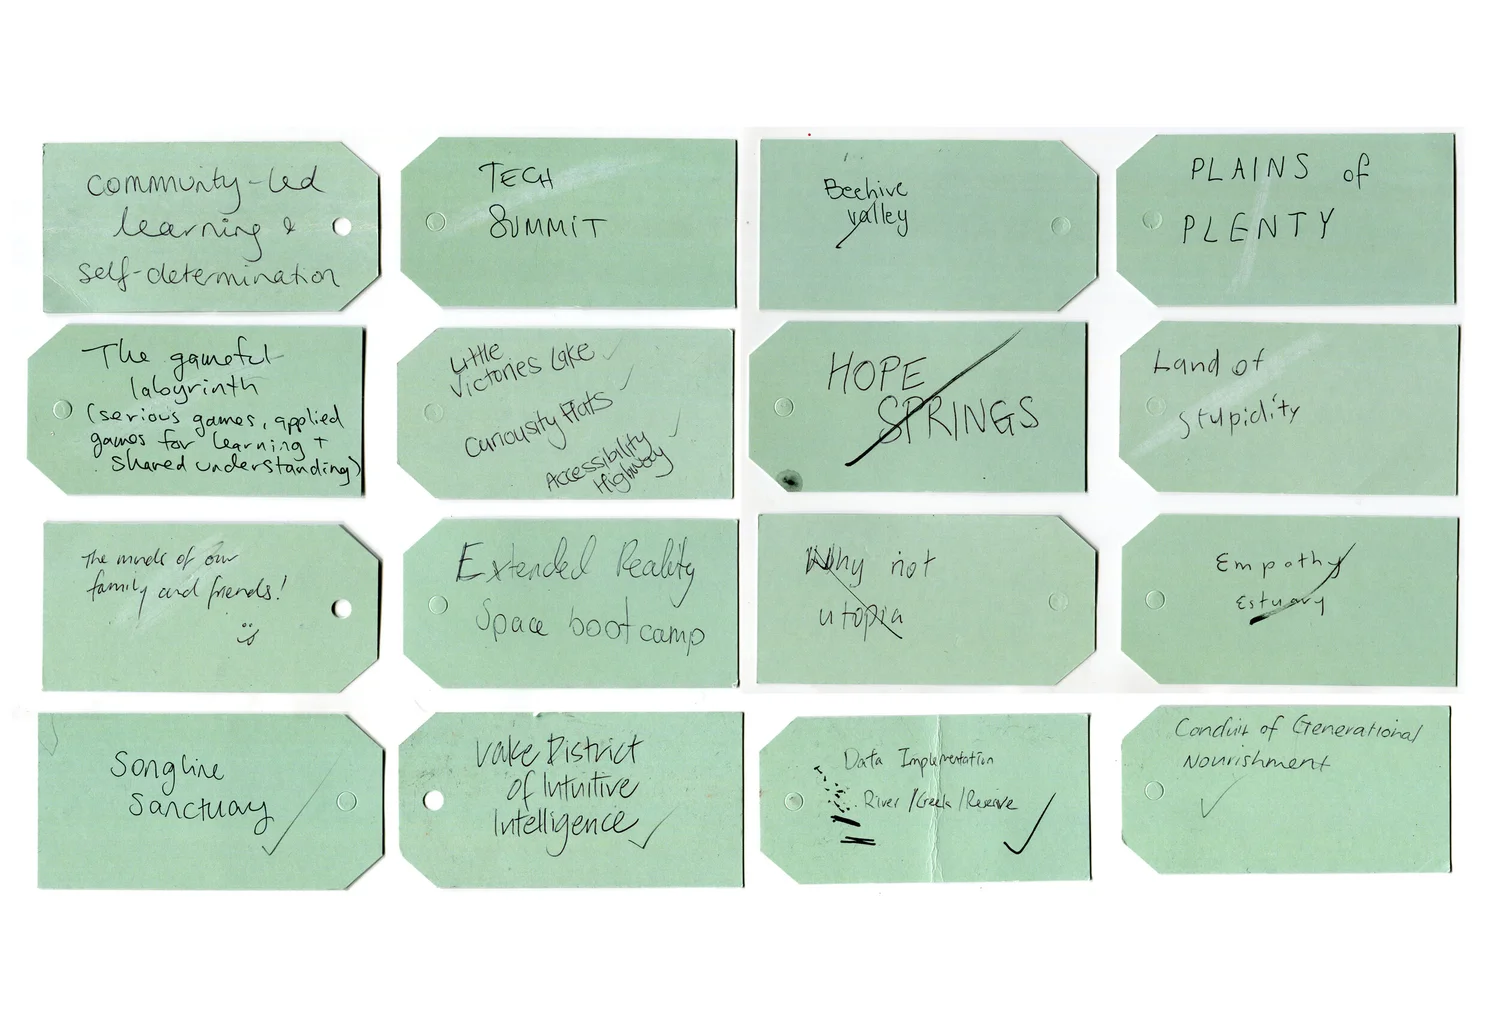 Community-Led
learning &
self-determination
TECH
SUMMIT
Beehive
valley
PLAINS of
PLENTY
The gameful
labyrinth
(serious games, applied
games for learning +
shared understanding)
Little
Victories Lake
Curiousity Flats
Accessibility
Highway
HOPE
SPRINGS
Land of
stupidity
The minds of our
family and friends!
Extended Reality
Space bootcamp
Why not
utopia
Empathy
Estuary
Songline
Sanctuary
District
of Intuitive
Intelligence
Data Implementation
River/Creek/Reserve
Conduit of Generational
Nourishment